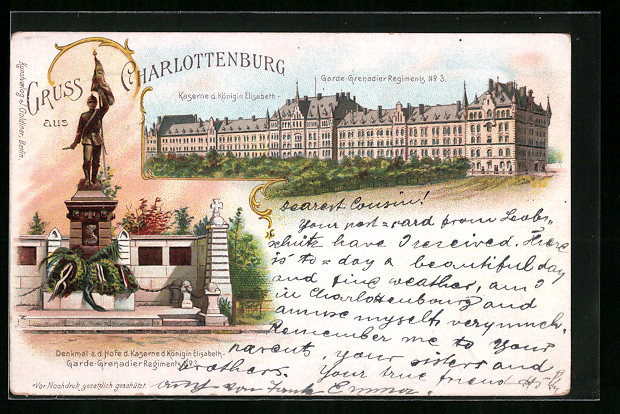 GRUSS
aus
CHARLOTTENBURG
Kunstverlag J. Goldiner, Berlin.
Kaserne d. Königin Elisabeth-
Garde-Grenadier-Regiments No 3.
Dearest Cousin!
Your post=card from Leobs-
chütz have I received. Here
is to=day a beautiful day
and fine weather, am I
in Charlottenbourg and
amuse myself very much.
Remember me to your
parents, your sisters and
brothers. Your true friend
von Tante Emma.
Denkmal a. d. Hofe d. Kaserne d. Königin Elisabeth-
Garde-Grenadier Regiments No 3.
Vor Nachdruck gesetzlich geschützt.